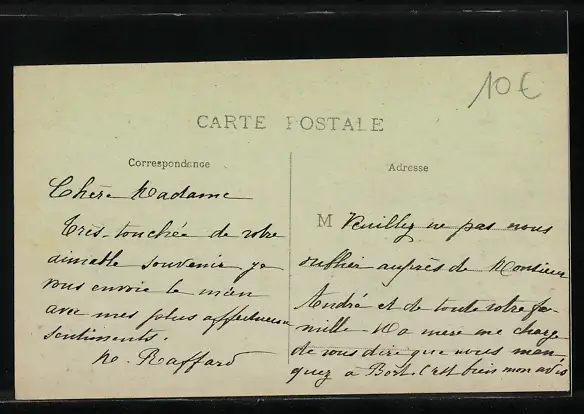 10€
CARTE POSTALE
Correspondance
Adresse
Chère Madame
Très-touchée de votre
aimable souvenir je
vous envoie le mien
avec mes plus affectueux
sentiments.
M. Raffard
M Veuillez ne pas nous
oublier auprès de Monsieur
André et de toute votre fa-
mille Ma mère me charge
de vous dire que vous man-
quez à Bort. C'est bien mon avis